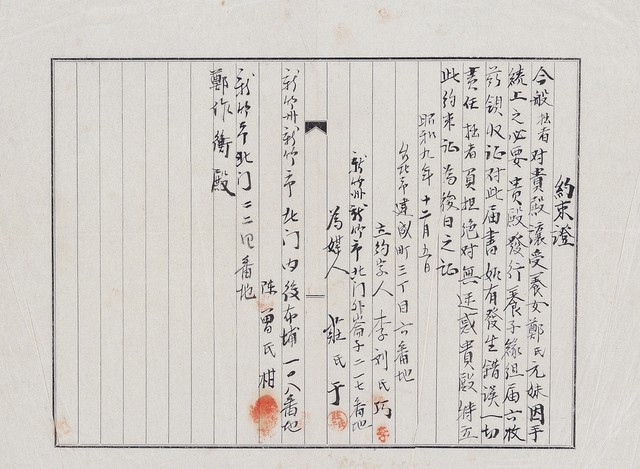 約束證
今般拙者对貴殿讓受養女鄭氏元妹因手
続上之必要貴殿發行養子緣组届六枚
並領収证对此届書如有發生錯誤一切
責任拙者負担绝对無迷惑貴殿特立
此約束证為後日之证
昭和九年十二月五日
台北市建成町三丁目六番地
立約字人 李刘氏
新竹州新竹市北门外崙子二一七番地
為媒人 莊氏于
新竹州新竹市北门内後布埔一〇八番地
陈曾氏柑
新竹市北门二二四番地
鄭作衡殿